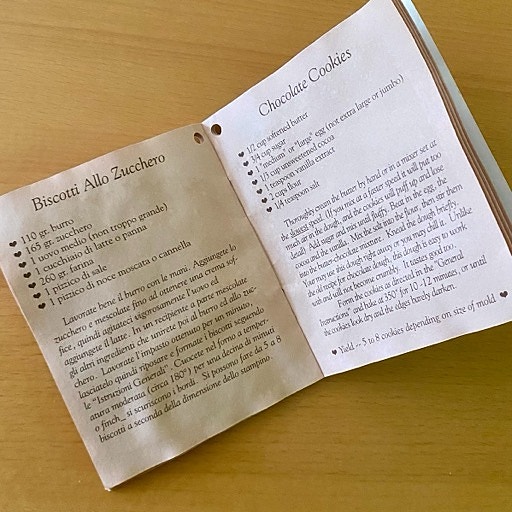 Biscotti Allo Zucchero
♥ 110 gr. burro
♥ 165 gr. zucchero
♥ 1 uovo medio (non troppo grande)
♥ 1 cucchiaio di latte o panna
♥ 260 gr. farina
♥ 1 pizzico di sale
♥ 1 pizzico di noce moscata o cannella
Lavorate bene il burro con le mani. Aggiungete lo
zucchero e mescolate fino ad ottenere una crema sof-
fice, quindi agitate leggermente l'uovo ed
aggiungete il latte. In un recipiente a parte mescolate
gli altri ingredienti che unirete poi al burro ed allo zuc-
chero. Lavorate l'impasto ottenuto per un minuto,
lasciatelo quindi riposare e formate i biscotti seguendo
le "Istruzioni Generali". Cuocete nel forno a temper-
atura moderata (circa 180°) per una decina di minuti
o finch_ si scuriscono i bordi. Si possono fare da 5 a 8
biscotti a seconda della dimensione dello stampino.
Chocolate Cookies
♥ 1/2 cup softened butter
♥ 3/4 cup sugar
♥ 1 "medium" or "large" egg (not extra large or jumbo)
♥ 1/3 cup unsweetened cocoa
♥ 1 teaspoon vanilla extract
♥ 2 cups flour
♥ 1/4 teaspoon salt
Thoroughly cream the butter by hand or in a mixer set at
the slowest speed. (If you mix at a faster speed it will put too
much air in the dough, and the cookies will puff up and lose
detail) Add sugar and mix until fluffy. Beat in the egg, the
cocoa and the vanilla. Mix the salt into the flour, then stir them
into the butter-chocolate mixture. Knead the dough briefly.
You may use this dough right away or you may chill it. Unlike
the usual recipe for chocolate dough, this dough is easy to work
with and will not become crumbly. It tastes good too.
Form the cookies as directed in the "General
Instructions" and bake at 350° for 10 -12 minutes, or until
the cookies look dry and the edges barely darken.
♥ Yield -- 5 to 8 cookies depending on size of mold ♥